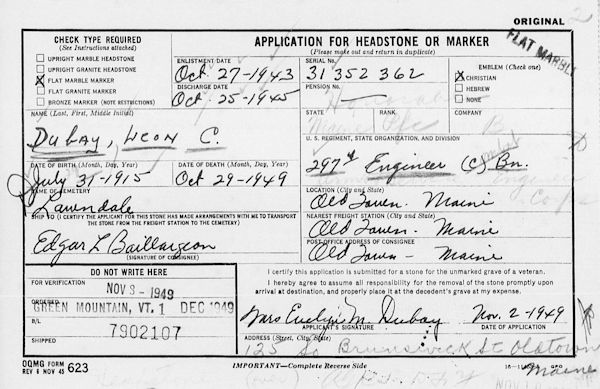 ORIGINAL
CHECK TYPE REQUIRED
(See Instructions attached)
UPRIGHT MARBLE HEADSTONE
UPRIGHT GRANITE HEADSTONE
X FLAT MARBLE MARKER
FLAT GRANITE MARKER
BRONZE MARKER (NOTE RESTRICTIONS)
APPLICATION FOR HEADSTONE OR MARKER
(Please make out and return in duplicate)
FLAT MARBLE
ENLISTMENT DATE
Oct 27-1943
DISCHARGE DATE
Oct 25-1945
SERIAL No.
31 352 362
PENSION No.
—
EMBLEM (Check one)
X CHRISTIAN
HEBREW
NONE
STATE
RANK
COMPANY
B
NAME (Last, First, Middle Initial)
Dubay, Leon C.
U. S. REGIMENT, STATE ORGANIZATION, AND DIVISION
297th Engineer (C) Bn.
DATE OF BIRTH (Month, Day, Year)
July 31-1915
DATE OF DEATH (Month, Day, Year)
Oct 29-1949
NAME OF CEMETERY
Lawndale
LOCATION (City and State)
Old Town. Maine
SHIP TO (I CERTIFY THE APPLICANT FOR THIS STONE HAS MADE ARRANGEMENTS WITH ME TO TRANSPORT
THE STONE FROM THE FREIGHT STATION TO THE CEMETERY)
NEAREST FREIGHT STATION (City and State)
Old Town. Maine
Edgar L Baillargeon
(SIGNATURE OF CONSIGNEE)
POST OFFICE ADDRESS OF CONSIGNEE
Old Town - Maine
DO NOT WRITE HERE
FOR VERIFICATION
NOV 8 - 1949
ORDERED
GREEN MOUNTAIN, VT. 1 DEC 1949
B/L
7902107
SHIPPED
I certify this application is submitted for a stone for the unmarked grave of a veteran.
I hereby agree to assume all responsibility for the removal of the stone promptly upon
arrival at destination, and properly place it at the decedent's grave at my expense.
Mrs Evelyn M. Dubay Nov. 2-1949
APPLICANT'S SIGNATURE DATE OF APPLICATION
ADDRESS (Street, City, State)
125 So Brunswick St Oldtown
Maine
OQMG FORM
REV 6 NOV 45 623
IMPORTANT—Complete Reverse Side
GPO